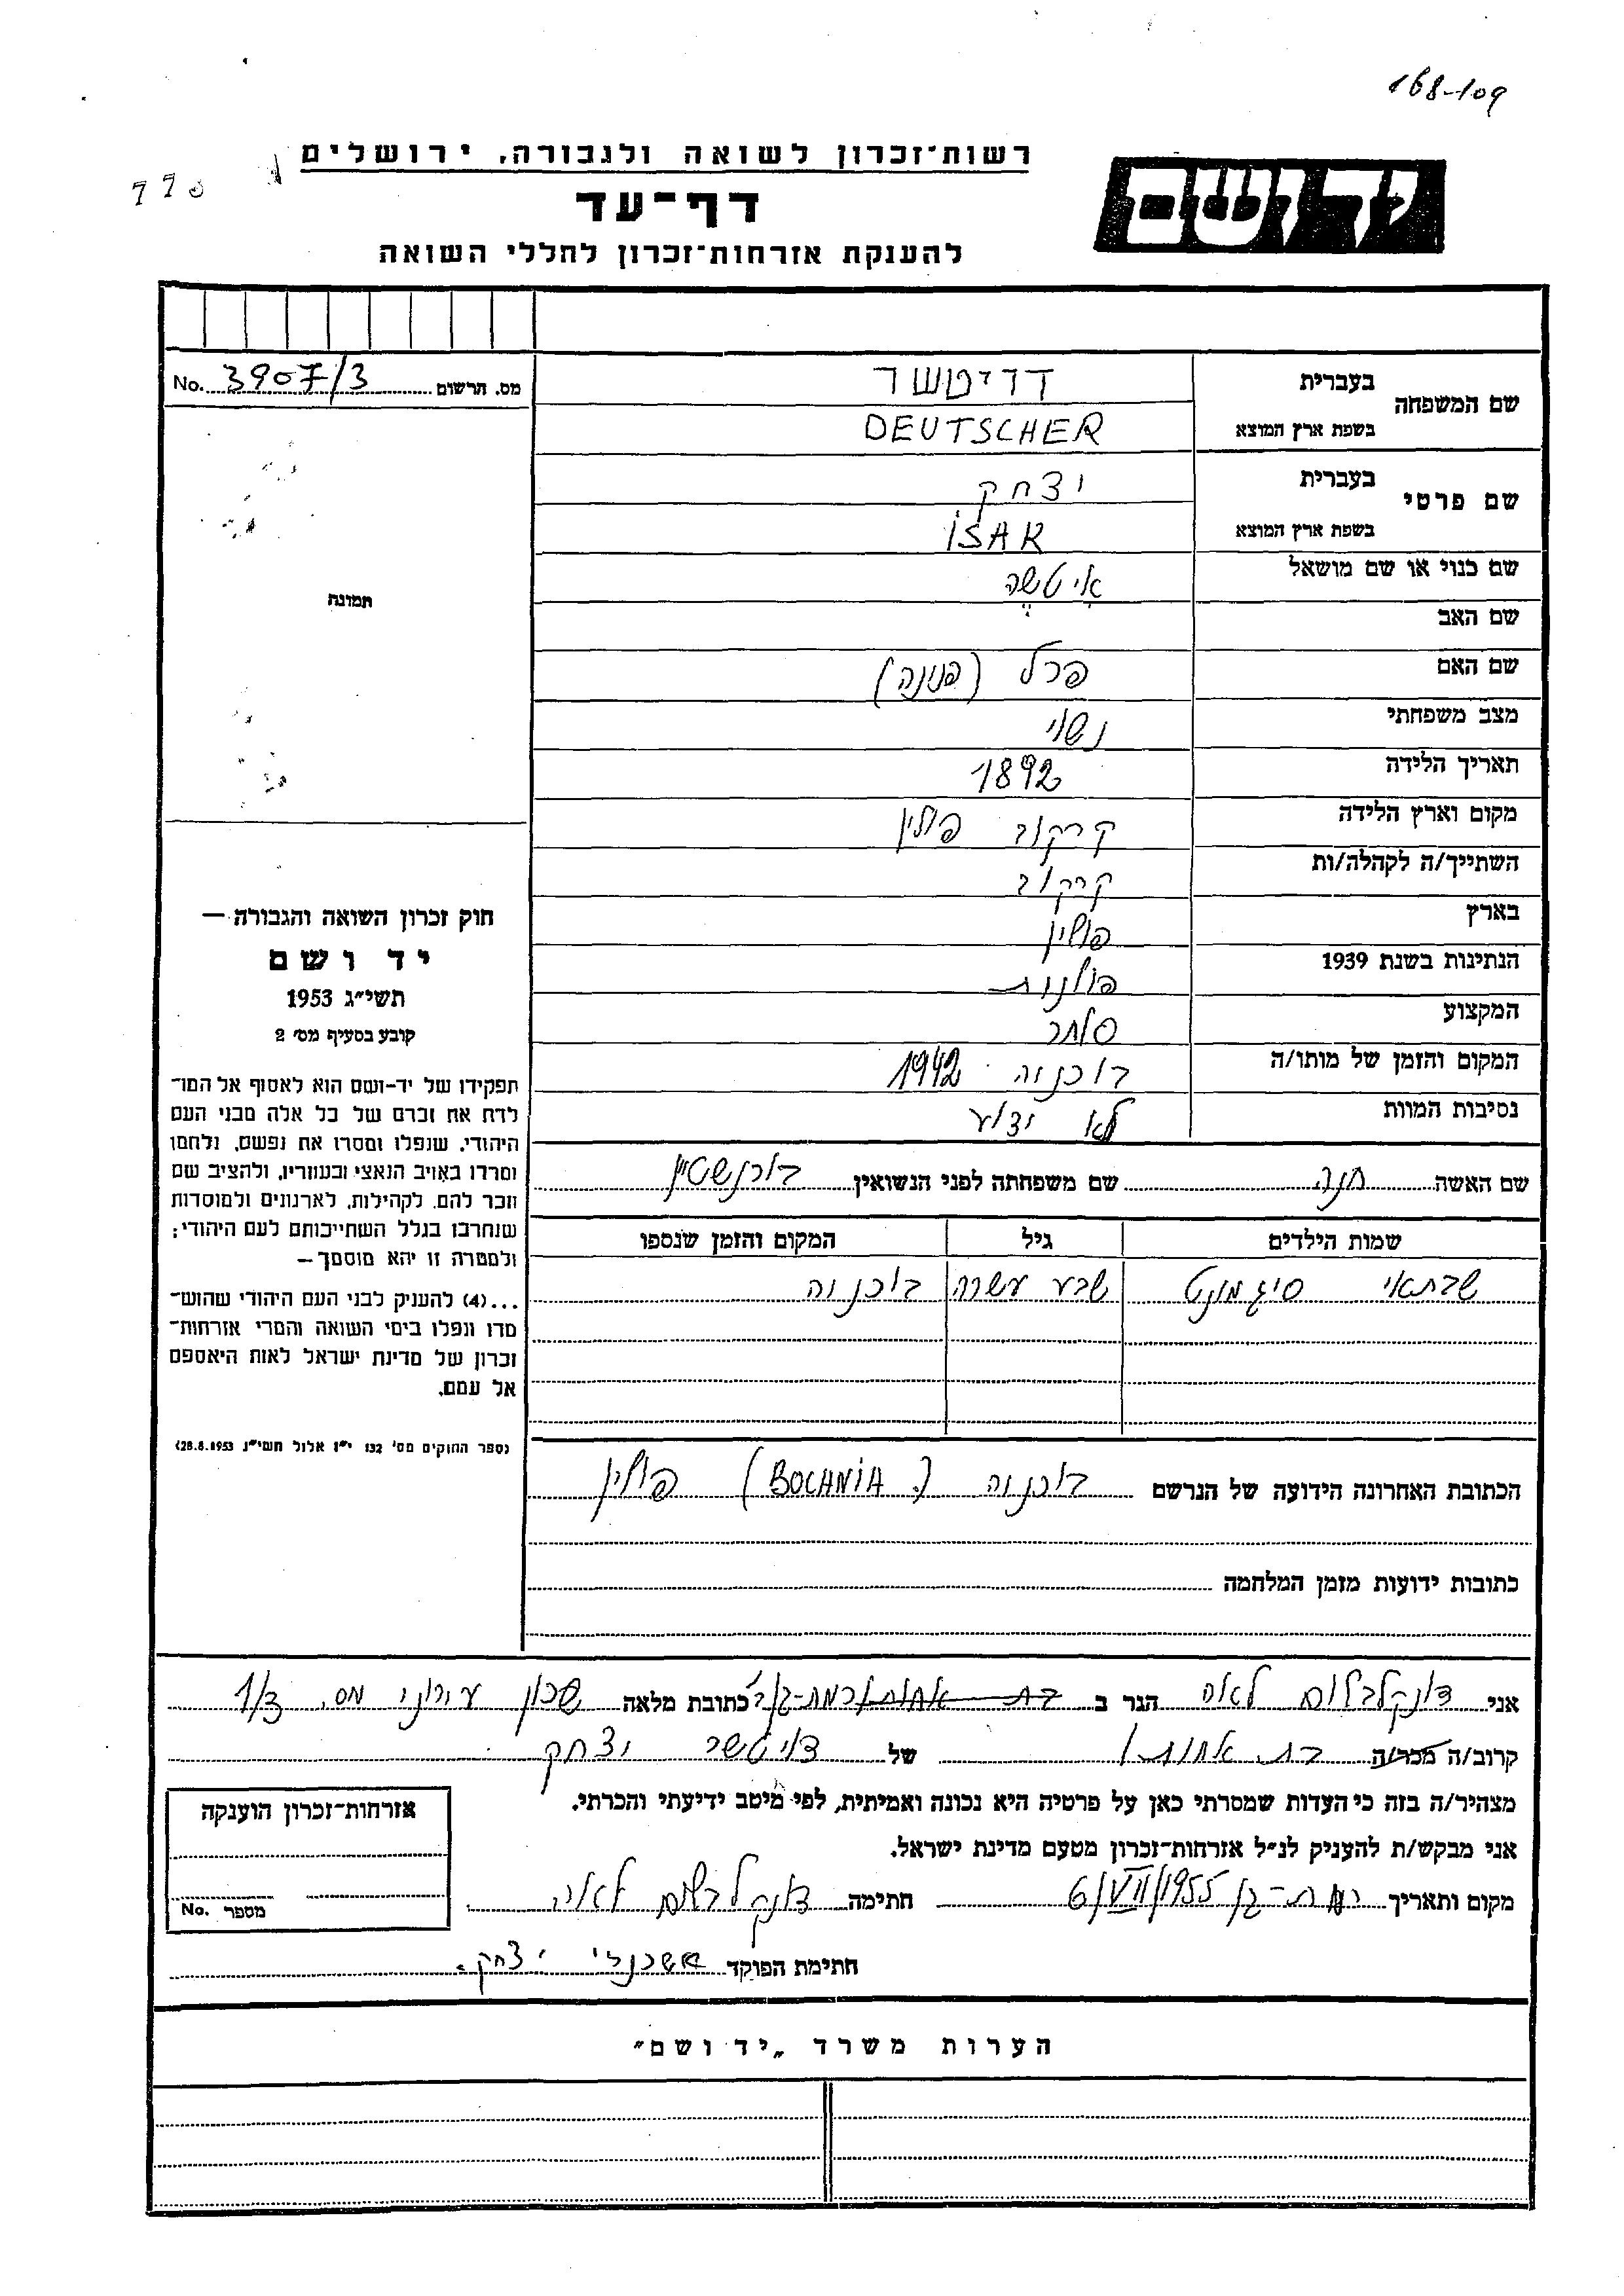 168-109
רשות־זכרון לשואה ולגבורה, ירושלים
יד ושם
דף־עד
להענקת אזרחות־זכרון לחללי השואה
מס. הרשום 3907/3 No.
שם המשפחה
בעברית דויטשר
בשפת ארץ המוצא DEUTSCHER
שם פרטי
בעברית יצחק
בשפת ארץ המוצא ISAK
שם כנוי או שם מושאל איטשה
שם האב
שם האם פרל (פנינה)
מצב משפחתי נשוי
תאריך הלידה 1892
מקום וארץ הלידה קרקוב פולין
השתייך/ה לקהלה/ות קרקוב
בארץ פולין
הנתינות בשנת 1939 פולנית
המקצוע סוחר
המקום והזמן של מותו/ה בוכניה 1942
נסיבות המוות לא ידוע
שם האשה חנה שם משפחתה לפני הנשואין בורנשטיין
שמות הילדים גיל המקום והזמן שנספו
שבתאי סיגמונט שבע עשרה בוכניה
הכתובת האחרונה הידועה של הנרשם בוכניה (BOCHNIA) פולין
כתובות ידועות מזמן המלחמה
תמונה
חוק זכרון השואה והגבורה —
יד ושם
תשי״ג 1953
קובע בסעיף מס׳ 2
תפקידו של יד-ושם הוא לאסוף אל המו־
לדת את זכרם של כל אלה מבני העם
היהודי, שנפלו ומסרו את נפשם, נלחמו
ומרדו באויב הנאצי ובעוזריו, ולהציב שם
וזכר להם, לקהילות, לארגונים ולמוסדות
שנחרבו בגלל השתייכותם לעם היהודי;
ולמטרה זו יהא מוסמך —
...(4) להעניק לבני העם היהודי שהוש־
מדו ונפלו בימי השואה והמרי אזרחות־
זכרון של מדינת ישראל לאות היאספם
אל עמם.
(ספר החוקים מס׳ 132 י״ז אלול תשי״ג 28.8.1953)
אני דונקלבלום לאה הגר ב רמת-גן כתובת מלאה שכון עירוני מס. 1/3
קרוב/ה מכר/ה בת אחותו של דויטשר יצחק
מצהיר/ה בזה כי העדות שמסרתי כאן על פרטיה היא נכונה ואמיתית, לפי מיטב ידיעתי והכרתי.
אני מבקש/ת להעניק לנ״ל אזרחות־זכרון מטעם מדינת ישראל.
מקום ותאריך רמת-גן 6/VII/1955 חתימה דונקלבלום לאה
חתימת הפוקד אשכנזי יצחק.
אזרחות־זכרון הוענקה
מספר No.
הערות משרד „יד ושם״